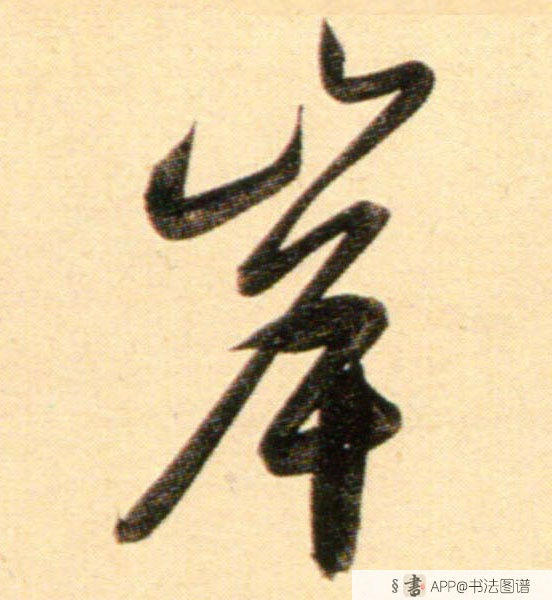 岸
§書 APP@书法图谱